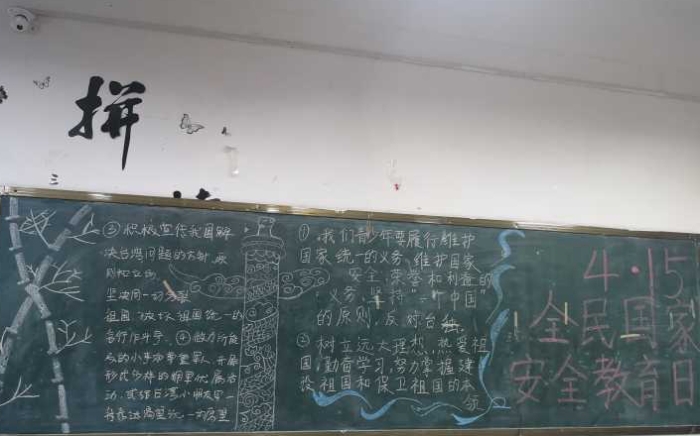 拼
③积极宣传我国解
决台湾问题的方针、原
则和立场,
坚决同一切分裂
祖国、破坏祖国统一的
言行作斗争、④
动、
①我们青少年要履行维护
国家统一的义务,维护国家
安全、荣誉和利益的
义务、坚持“一个中国”
的原则,反对台独,
②树立远大理想,热爱祖
国,勤奋学习,努力掌握建
设祖国和保卫祖国的本
领
4·15
全民国家
安全教育日